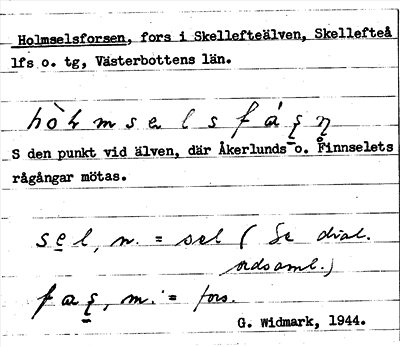 Holmselsforsen, fors i Skellefteälven, Skellefteå
lfs o. tg, Västerbottens län.
S den punkt vid älven, där Åkerlunds o. Finnselets
rågångar mötas.
sel, n. = sel (Se dial.
ordsaml.)
m. = fors.
G. Widmark, 1944.